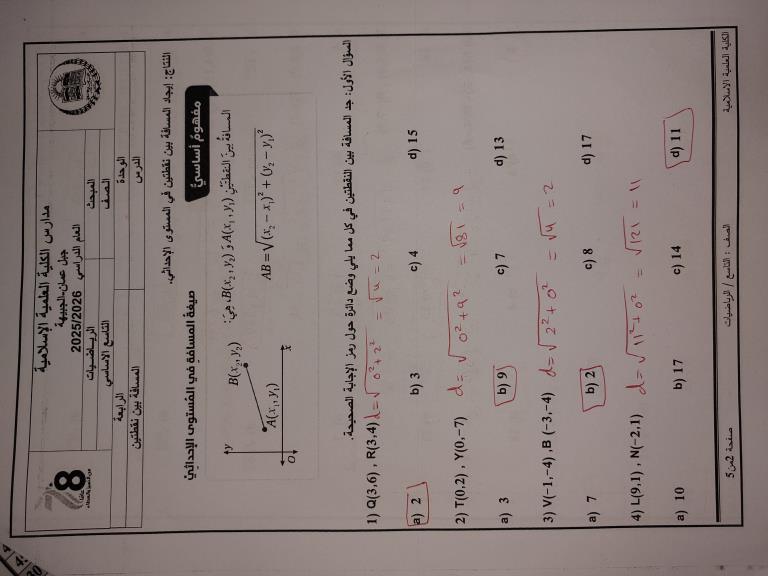 مدارس الكلية العلمية الإسلامية
جبل عمان-الجبيهة
العام الدراسي 2025/2026
المبحث الرياضيات
الصف التاسع الاساسي
الوحدة الرابعة
الدرس المسافة بين نقطتين
8
النتاج: إيجاد المسافة بين نقطتين في المستوى الإحداثي.
مفهوم أساسي
صيغة المسافة في المستوى الإحداثي
المسافة بين النقطتين A(x₁, y₁) و B(x₂, y₂)، هي:
AB = √(x₂ − x₁)² + (y₂ − y₁)²
y
B(x₂, y₂)
A(x₁, y₁)
O
x
السؤال الأول: جد المسافة بين النقطتين في كل مما يلي وضع دائرة حول رمز الإجابة الصحيحة.
1) Q(3,6) , R(3,4) d = √0² + 2² = √4 = 2
a) 2 b) 3 c) 4 d) 15
2) T(0,2) , Y(0,−7) d = √0² + 9² = √81 = 9
a) 3 b) 9 c) 7 d) 13
3) V(−1,−4) ,B (−3,−4) d = √2² + 0² = √4 = 2
a) 7 b) 2 c) 8 d) 17
4) L(9,1) , N(−2,1) d = √11² + 0² = √121 = 11
a) 10 b) 17 c) 14 d) 11
الكلية العلمية الاسلامية
الصف : التاسع / الرياضيات
صفحة 2من5